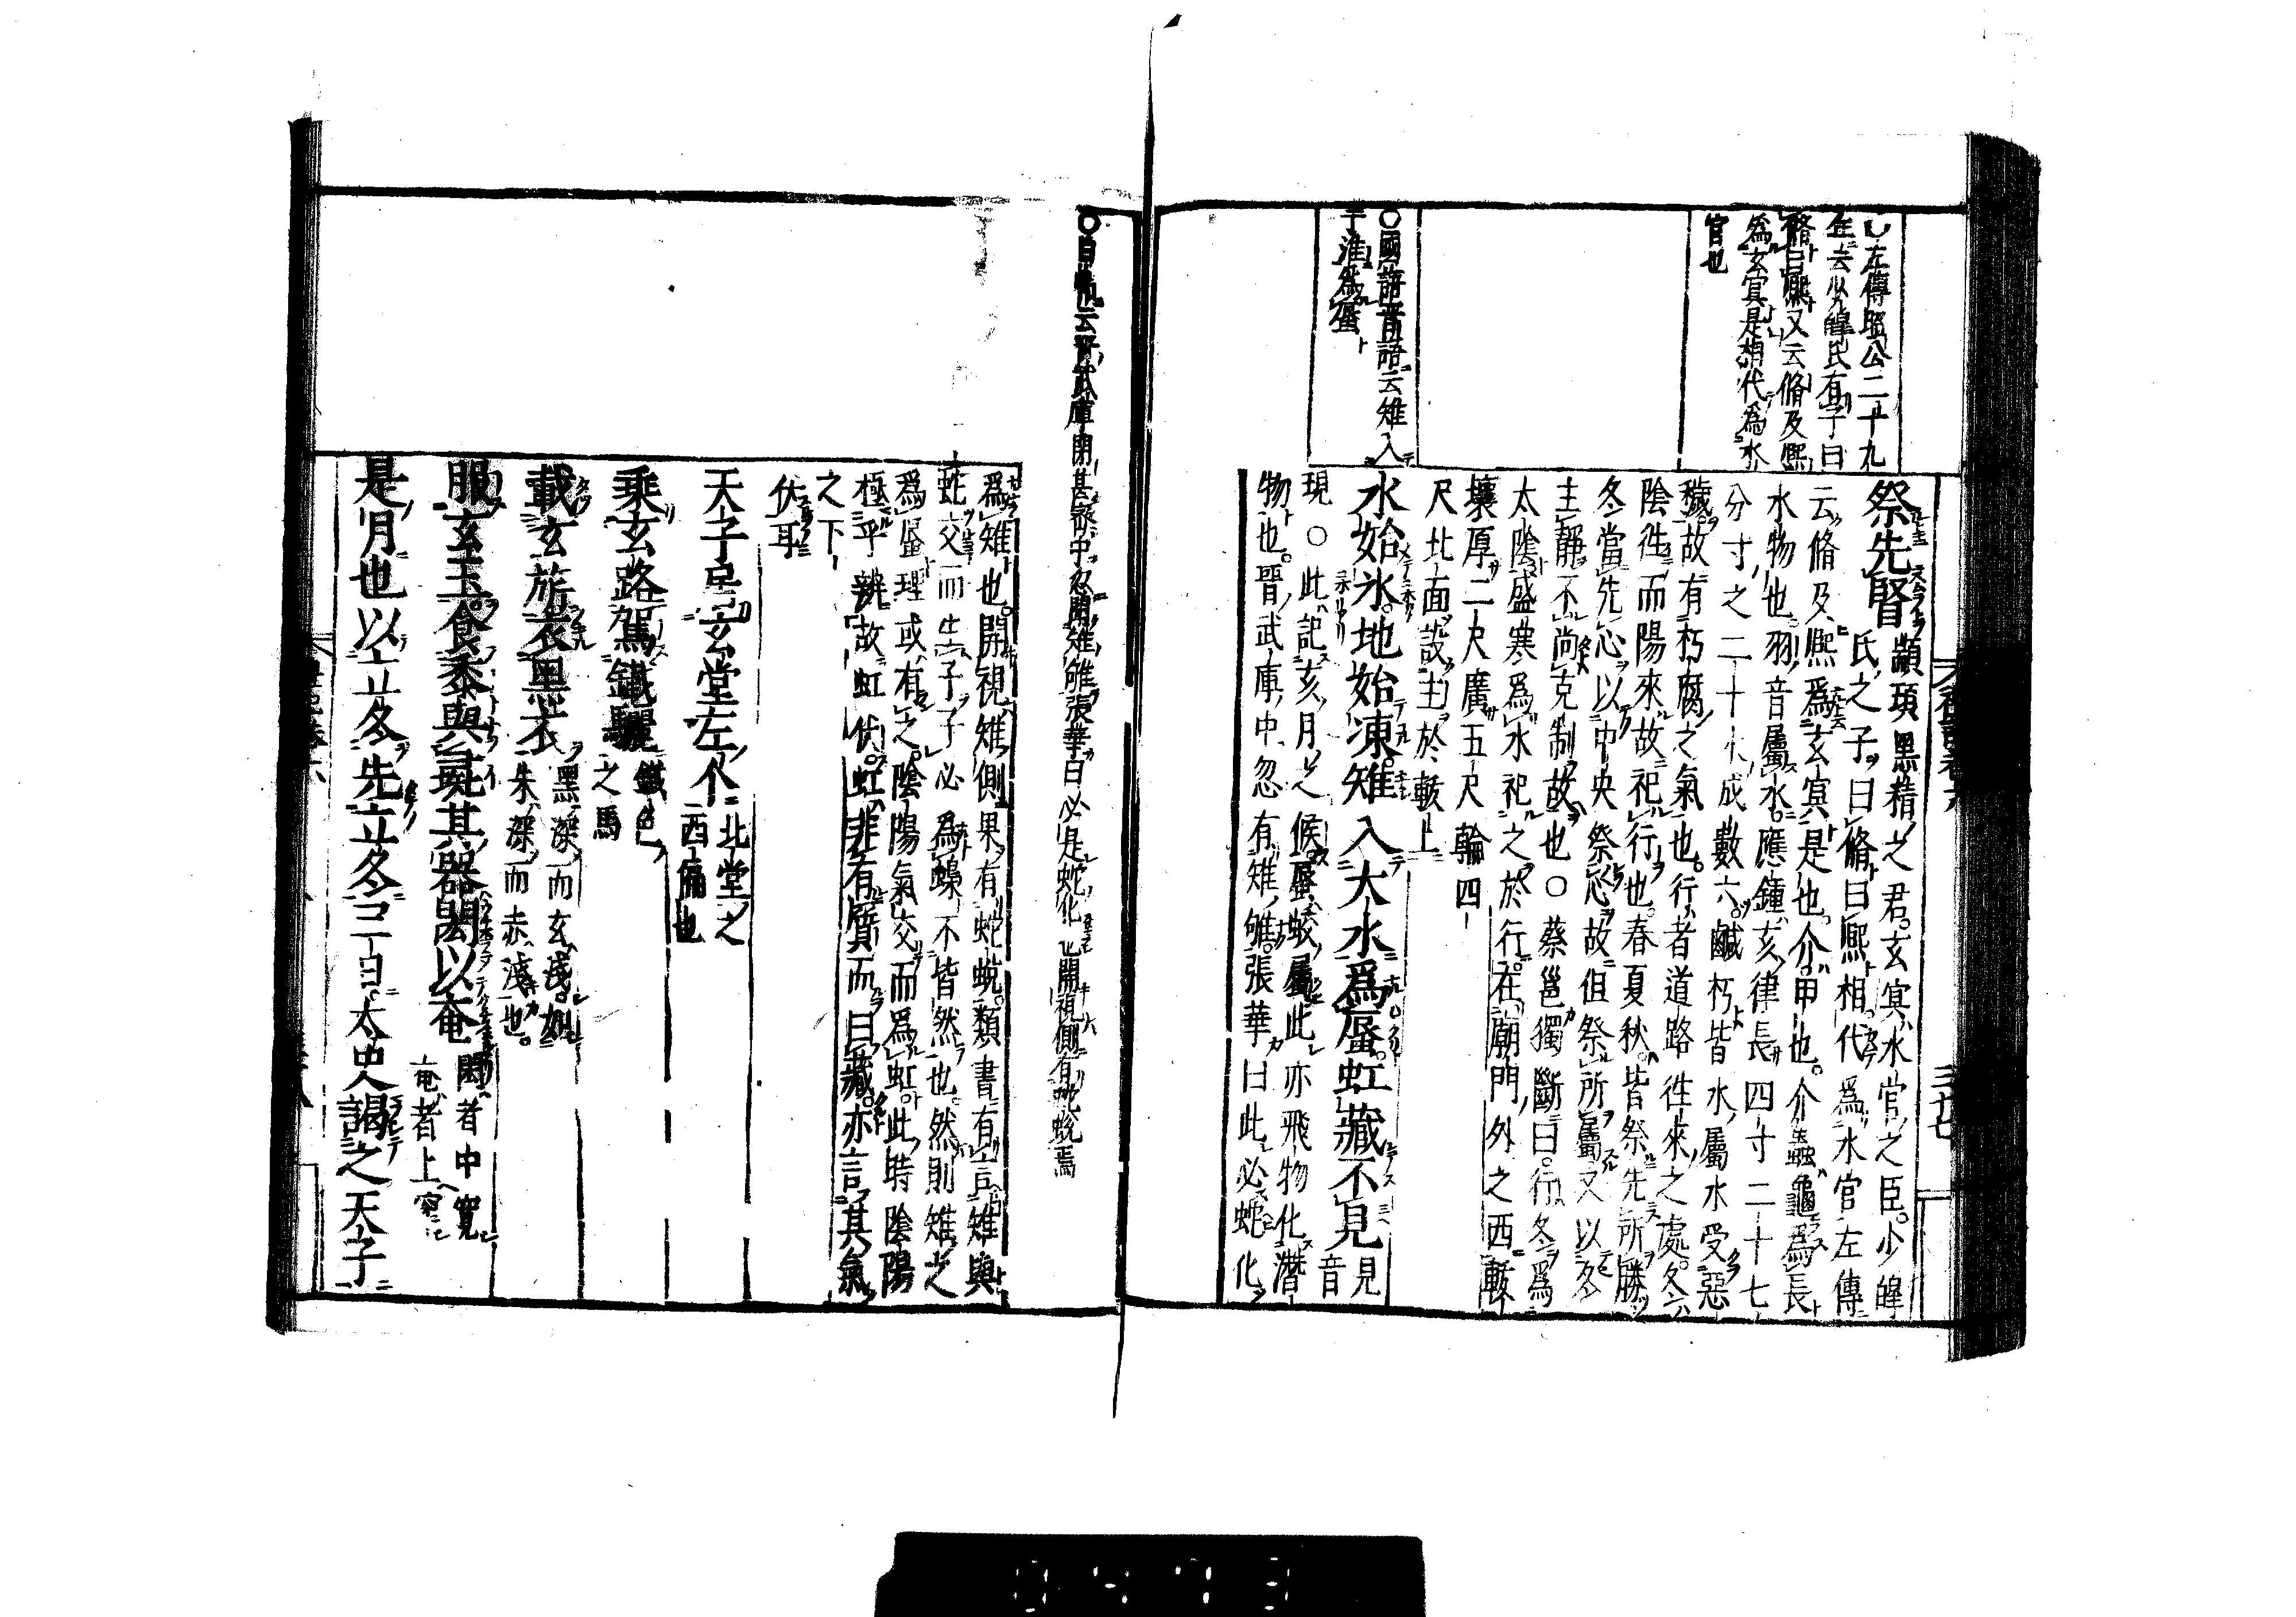 左傳昭公二十九
年云少皥氏有子曰
脩曰熙又云脩及熙
為玄冥是相代為水
官也
○國語晋語云雉入
于淮為蜃
祭先腎
顓頊黒精之君玄冥水官之臣少皥
氏之子曰脩曰熙相代爲水官左傳
云脩及熙爲玄冥是也介甲也介蟲龜爲長
水物也羽音屬水應鍾亥律長四寸二十七
分寸之二十水成數六鹹朽皆水屬水受惡
穢故有朽腐之氣也行者道路徃來之處冬
陰徃而陽來故祀行也春夏秋皆祭先所勝
冬當先心以中央祭心故但祭所屬又以冬
主靜不尚克制故也○蔡邕獨斷曰行冬爲
太陰盛寒爲水祀之於行在廟門外之西軷
壤厚二尺廣五尺輪四
尺北面設主於軷上
水始氷地始凍雉入大水爲蜃虹藏不見
見音
現○此記亥月之候蜃蛟屬此亦飛物化潛
物也晋武庫中忽有雉雊張華曰此必蛇化
云晋武庫閉甚密中忽聞雉雊張華曰必是蛇化也開視側有蛇蛻焉
爲雉也開視雉側果有蛇蛻類書有言雉與
蛇交而生子子必爲蟂不皆然也然則雉之
爲蜃理或有之陰陽氣交而爲虹此時陰陽
極乎辨故虹伏虹非有質而曰藏亦言其氣
之下
伏耳
天子居玄堂左个
北堂之
西偏也
乘玄路駕鐵驪
鐵色
之馬
載玄旂衣黒衣
黑深而玄淺如
朱深而赤淺也
服玄玉食黍與彘其器閎以奄
閎者中寛
奄者上窄
是月也以立冬先立冬三日太史謁之天子
三十七